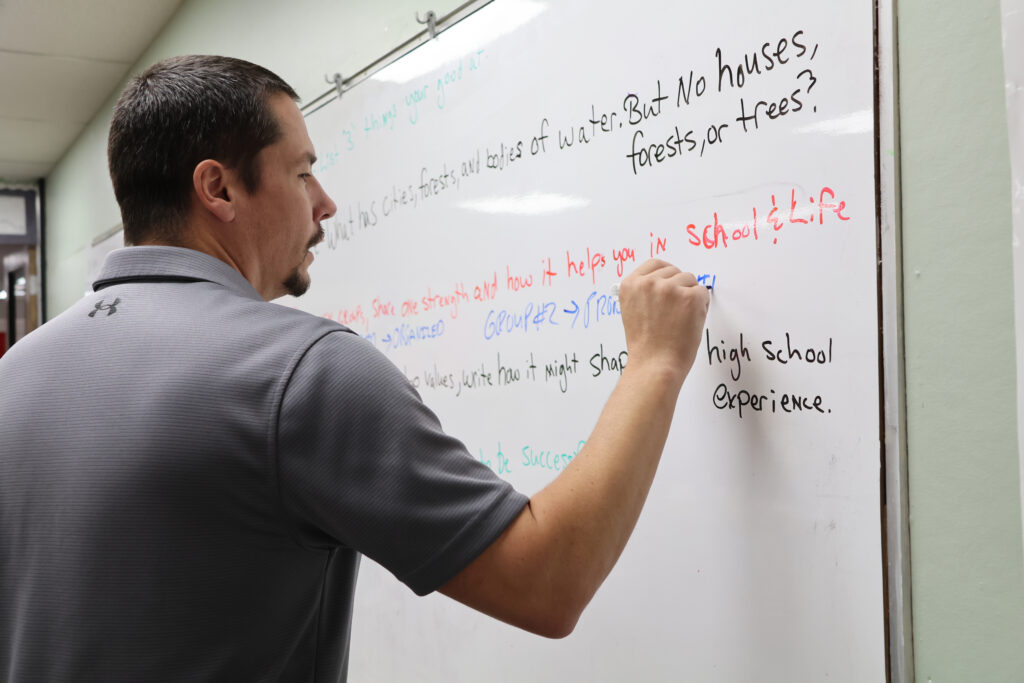 "3" things your good at.
what has cities, forests, and bodies of water. But No houses,
forests, or trees?
share one strength and how it helps you in school & Life
→ ORGANIZED GROUP #2 →
values, write how it might high school
experience.
to be